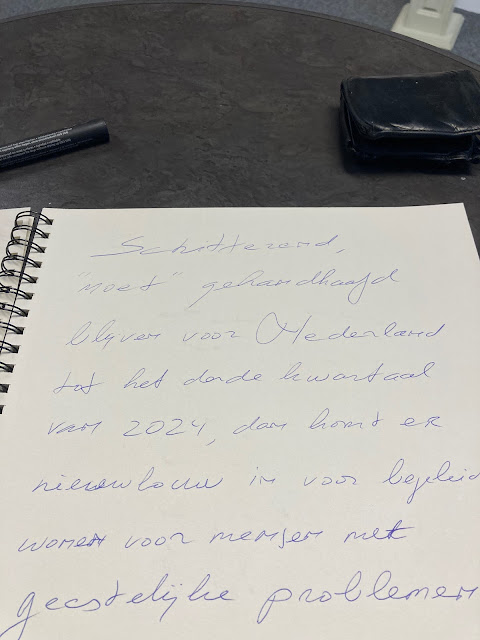 Schitterend,
"moet" gehandhaafd
blijven voor Nederland
tot het derde kwartaal
van 2024, dan komt er
nieuwbouw in voor begeleid
wonen voor mensen met
geestelijke problemen